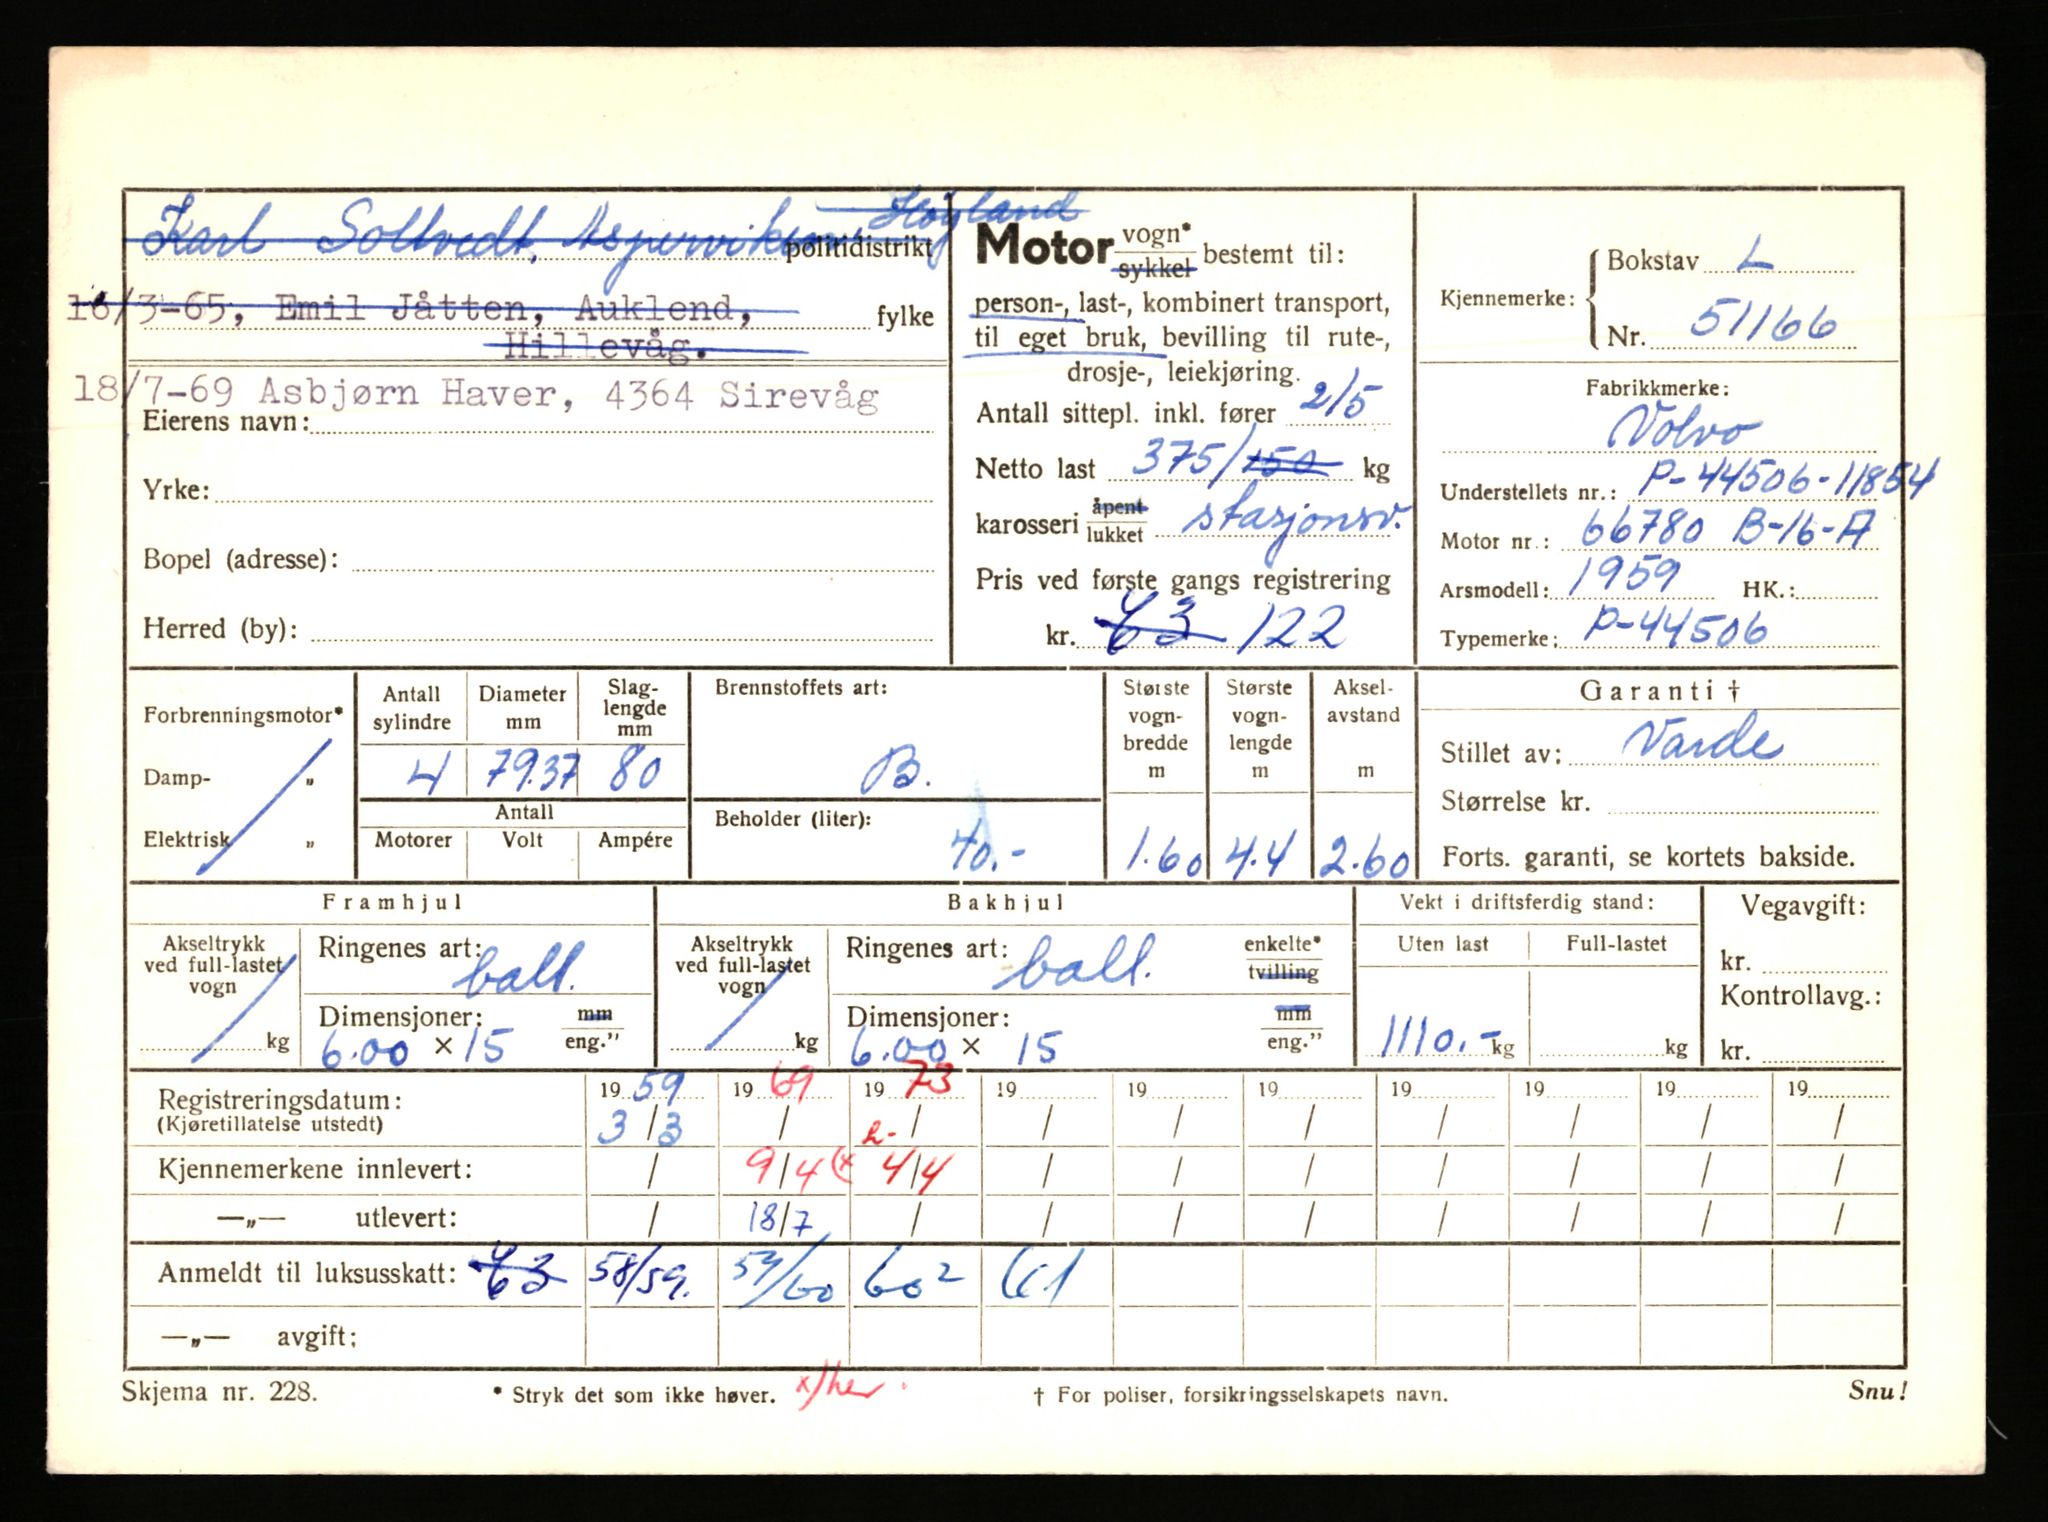 Karl Soltvedt, Aspervika Høyland
politidistrikt
16/3-65, Emil Jåtten, Auklend,
fylke
Hillevåg.
18/7-69 Asbjørn Haver, 4364 Sirevåg
Eierens navn:
Yrke:
Bopel (adresse):
Herred (by):
Motor vogn* / sykkel bestemt til:
person-, last-, kombinert transport,
til eget bruk, bevilling til rute-,
drosje-, leiekjøring.
Antall sittepl. inkl. fører 2/5
Netto last 375/150 kg
karosseri åpent / lukket stasjonsv.
Pris ved første gangs registrering
kr. 122
Kjennemerke: Bokstav L
Nr. 51166
Fabrikkmerke:
Volvo
Understellets nr.: P-44506-11854
Motor nr.: 66780 B-16-A
Arsmodell: 1959 HK.:
Typemerke: P-44506
Forbrenningsmotor*
Damp- „
Elektrisk „
Antall sylindre
Diameter mm
Slag-lengde mm
4 79.37 80
Antall
Motorer Volt Ampére
Brennstoffets art:
B.
Beholder (liter):
40.-
Største vogn-bredde m
1.60
Største vogn-lengde m
4.4
Aksel-avstand m
2.60
Garanti †
Stillet av: Varde
Størrelse kr.
Forts. garanti, se kortets bakside.
Framhjul
Akseltrykk ved full-lastet vogn
kg
Ringenes art: ball.
Dimensjoner: mm / eng."
6.00 × 15
Bakhjul
Akseltrykk ved full-lastet vogn
kg
Ringenes art: ball. enkelte* / tvilling
Dimensjoner: mm / eng."
6.00 × 15
Vekt i driftsferdig stand:
Uten last Full-lastet
1110.- kg kg
Vegavgift:
kr.
Kontrollavg.:
kr.
Registreringsdatum: 19 59 19 69 19 73 19 19 19 19 19 19 19
(Kjøretillatelse utstedt) 3/3 / / / / / / / / /
Kjennemerkene innlevert: / 9/4 (x 4/4 / / / / / / /
—„— utlevert: / 18/7 / / / / / / / /
Anmeldt til luksusskatt: 58/59. 59/60 60² 61
—„— avgift;
Skjema nr. 228.
* Stryk det som ikke høver.
x/her
† For poliser, forsikringsselskapets navn.
Snu!